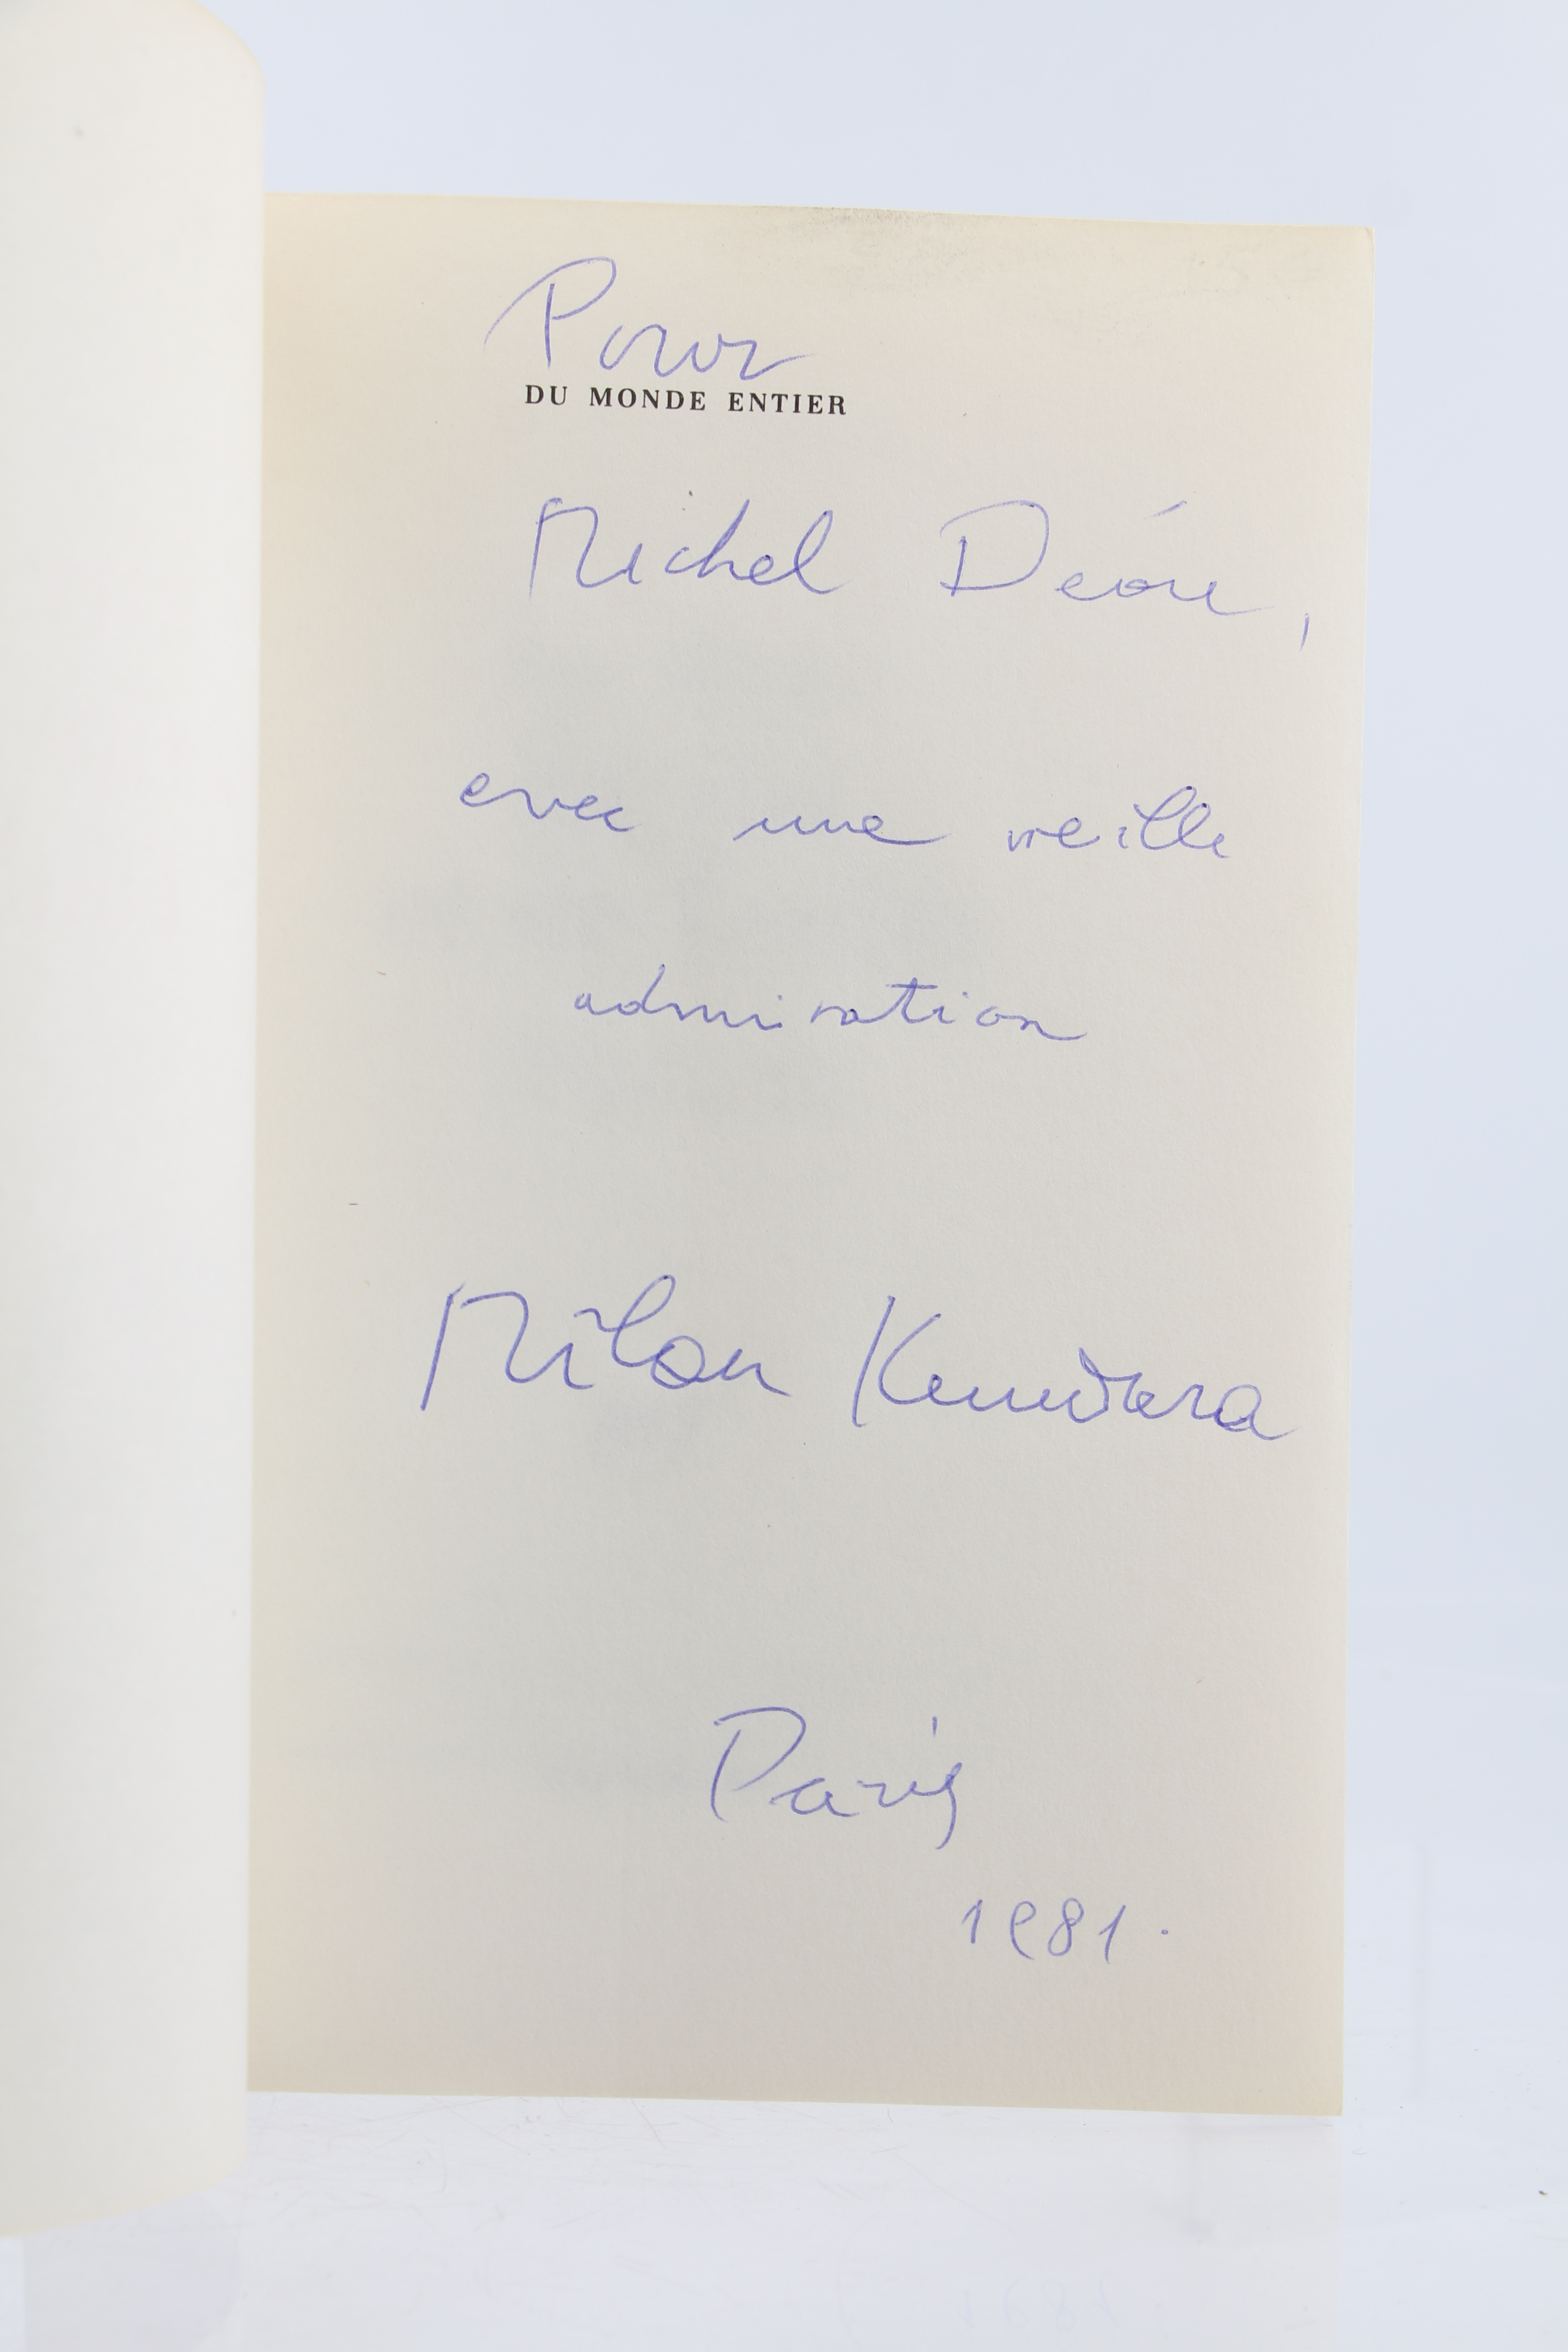 Pour
DU MONDE ENTIER
Michel Déon,
avec une vieille
admiration
Milan Kundera
Paris
1981.